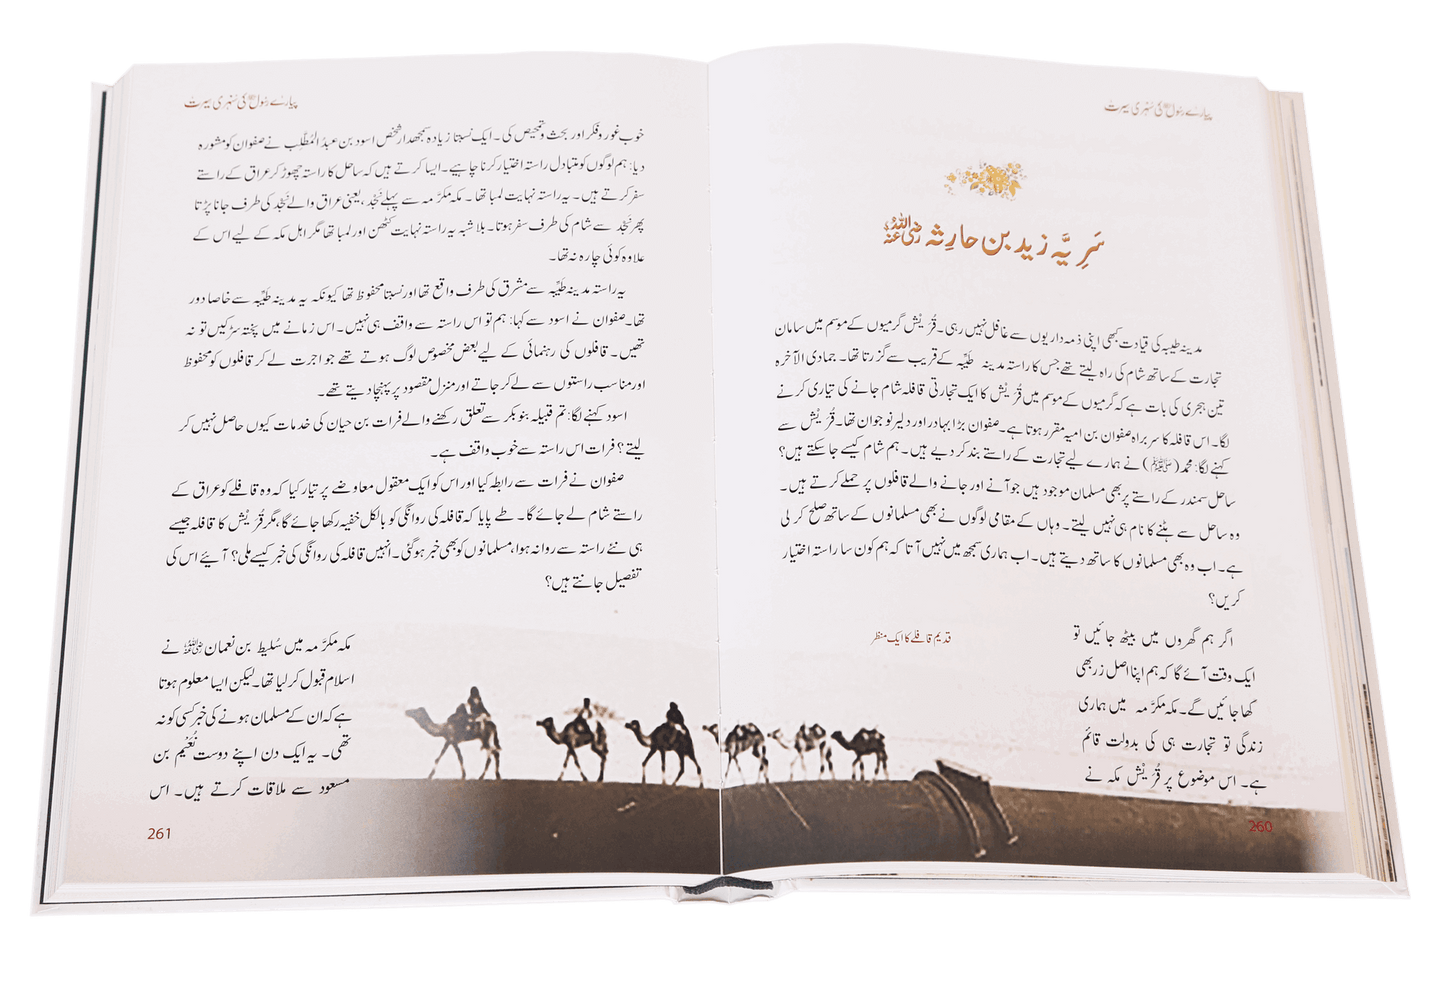 پیارے رسول ﷺ کی سنہری سیرت
سَرِیَّہ زید بن حارِثہ رضی اللہ عنہ
مدینہ طیبہ کی قیادت کبھی اپنی ذمہ داریوں سے غافل نہیں رہی۔ قُریش گرمیوں کے موسم میں سامان
تجارت کے ساتھ شام کی راہ لیتے تھے جس کا راستہ مدینہ طَیِّبہ کے قریب سے گزرتا تھا۔ جمادی الآخرہ
تین ہجری کی بات ہے کہ گرمیوں کے موسم میں قُریش کا ایک تجارتی قافلہ شام جانے کی تیاری کرنے
لگا۔ اس قافلہ کا سربراہ صفوان بن امیہ مقرر ہوتا ہے۔ صفوان بڑا بہادر اور دلیر نوجوان تھا۔ قُریش سے
کہنے لگا: محمد (ﷺ) نے ہمارے لیے تجارت کے راستے بند کر دیے ہیں۔ ہم شام کیسے جا سکتے ہیں؟
ساحل سمندر کے راستے پر بھی مسلمان موجود ہیں جو آنے اور جانے والے قافلوں پر حملے کرتے ہیں۔
وہ ساحل سے ہٹنے کا نام ہی نہیں لیتے۔ وہاں کے مقامی لوگوں نے بھی مسلمانوں کے ساتھ صلح کر لی
ہے۔ اب وہ بھی مسلمانوں کا ساتھ دیتے ہیں۔ اب ہماری سمجھ میں نہیں آتا کہ ہم کون سا راستہ اختیار
کریں؟
اگر ہم گھروں میں بیٹھ جائیں تو
ایک وقت آئے گا کہ ہم اپنا اصل زر بھی
کھا جائیں گے۔ مکہ مکرّمہ میں ہماری
زندگی تو تجارت ہی کی بدولت قائم
ہے۔ اس موضوع پر قُریش مکہ نے
قدیم قافلے کا ایک منظر
260
پیارے رسول ﷺ کی سنہری سیرت
خوب غور و فکر اور بحث و تمحیص کی۔ ایک نسبتا زیادہ سمجھدار شخص اسود بن عبدُ المُطَّلِب نے صفوان کو مشورہ
دیا: ہم لوگوں کو متبادل راستہ اختیار کرنا چاہیے۔ ایسا کرتے ہیں کہ ساحل کا راستہ چھوڑ کر عراق کے راستے
سفر کرتے ہیں۔ یہ راستہ نہایت لمبا تھا۔ مکہ مکرّمہ سے پہلے نَجْد، یعنی عراق والے نَجْد کی طرف جانا پڑتا
پھر نَجْد سے شام کی طرف سفر ہوتا۔ بلا شبہ یہ راستہ نہایت کٹھن اور لمبا تھا مگر اہل مکہ کے لیے اس کے
علاوہ کوئی چارہ نہ تھا۔
یہ راستہ مدینہ طَیِّبہ سے مشرق کی طرف واقع تھا اور نسبتا محفوظ تھا کیونکہ یہ مدینہ طَیِّبہ سے خاصا دور
تھا۔ صفوان نے اسود سے کہا: ہم تو اس راستہ سے واقف ہی نہیں۔ اس زمانے میں پختہ سڑکیں تو نہ
تھیں۔ قافلوں کی رہنمائی کے لیے بعض مخصوص لوگ ہوتے تھے جو اجرت لے کر قافلوں کو محفوظ
اور مناسب راستوں سے لے کر جاتے اور منزل مقصود پر پہنچا دیتے تھے۔
اسود کہنے لگا: تم قبیلہ بنو بکر سے تعلق رکھنے والے فرات بن حیان کی خدمات کیوں حاصل نہیں کر
لیتے؟ فرات اس راستہ سے خوب واقف ہے۔
صفوان نے فرات سے رابطہ کیا اور اس کو ایک معقول معاوضے پر تیار کیا کہ وہ قافلے کو عراق کے
راستے شام لے جائے گا۔ طے پایا کہ قافلہ کی روانگی کو بالکل خفیہ رکھا جائے گا، مگر قُریش کا قافلہ جیسے
ہی نئے راستہ سے روانہ ہوا، مسلمانوں کو بھی خبر ہوگئی۔ انہیں قافلہ کی روانگی کی خبر کیسے ملی؟ آیئے اس کی
تفصیل جانتے ہیں؟
مکہ مکرّمہ میں سُلیط بن نعمان رضی اللہ عنہ نے
اسلام قبول کر لیا تھا۔ لیکن ایسا معلوم ہوتا
ہے کہ ان کے مسلمان ہونے کی خبر کسی کو نہ
تھی۔ یہ ایک دن اپنے دوست نُعَیْم بن
مسعود سے ملاقات کرتے ہیں۔ اس
261